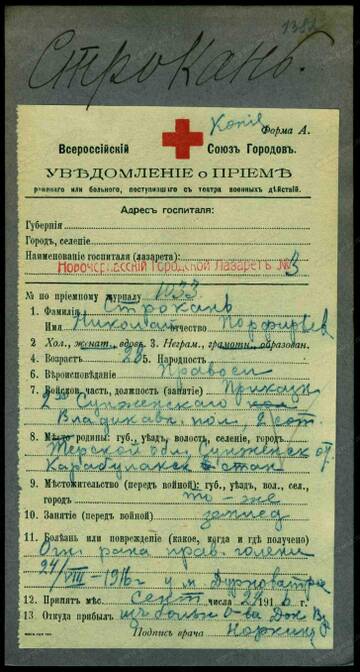 1381
Строкань.
Копія
Форма А.
Всероссійскій Союзъ Городовъ.
УВѢДОМЛЕНІЕ о ПРІЕМѢ
раненаго или больного, поступившаго съ театра военныхъ дѣйствій.
Адресъ госпиталя:
Губернія
Городъ, селеніе
Наименованіе госпиталя (лазарета):
Новочеркасскій Городской Лазаретъ № 3
№ по пріемному журналу 1033
1. Фамилія Строкань
Имя Николай отчество Порфирьев
2 Хол., женат., вдовъ. 3. Неграм., грамотн., образован.
4. Возрастъ 28 5. Народность
6. Вѣроисповѣданіе Правосл
7. Войсков. часть, должность (занятіе) Приказн
2 Сунженскаго
Владикавк. пол., 2 сот.
8. Мѣсто родины: губ., уѣздъ, волость, селеніе, городъ
Терской обл Сунженск от.
Карабулакск стан
9. Мѣстожительство (передъ войной): губ., уѣздъ, вол., сел.,
городъ то-же
10. Занятіе (передъ войной) землед
11. Болѣзнь или поврежденіе (какое, когда и гдѣ получено)
Огн рана прав. голени
24/VIII–1916 г у м
12. Принятъ мѣс. Сент числа 24 1916 г.
13. Откуда прибылъ из больн О-ва Док
Подпись врача